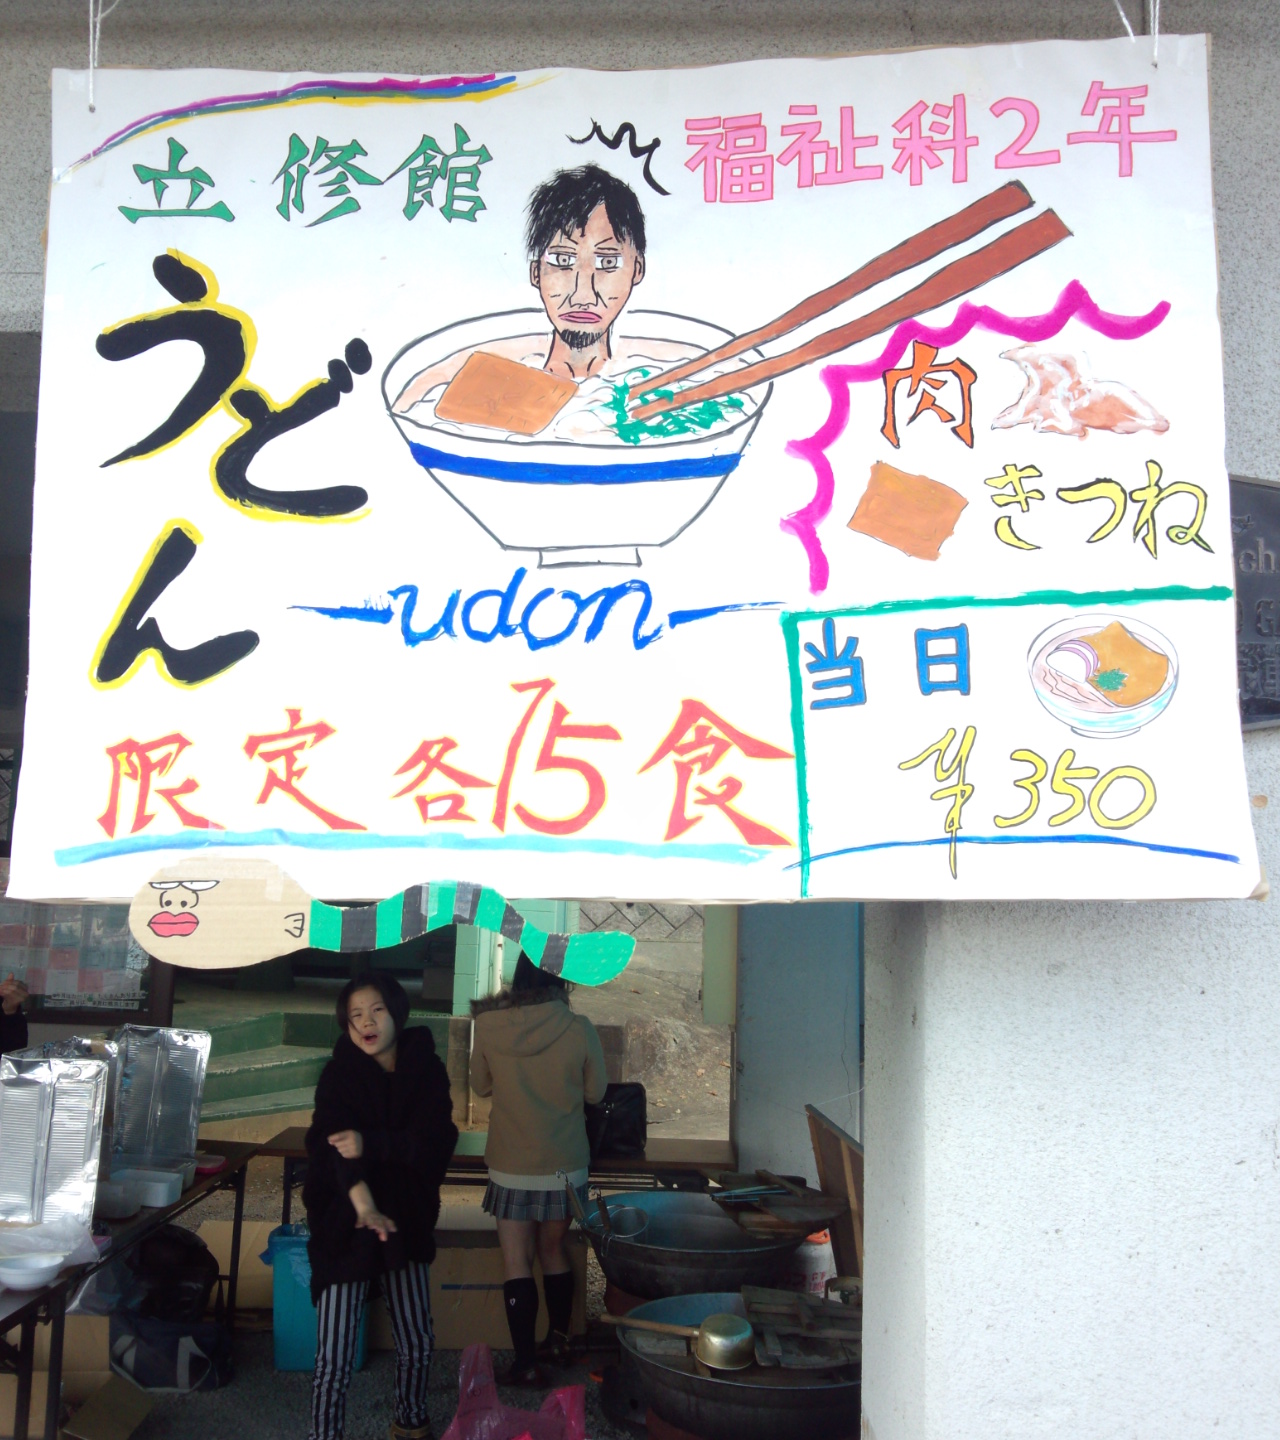 立修館
福祉科2年
うどん
肉
きつね
udon
当日
¥350
限定各75食